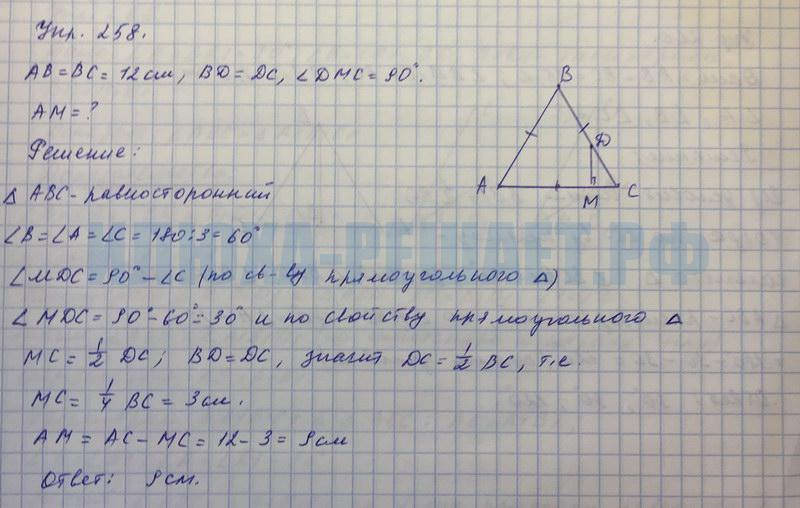 Упр. 258.
AB = BC = 12 см, BD = DC, ∠DMC = 90°.
AM = ?
Решение:
△ ABC - равносторонний
∠B = ∠A = ∠C = 180 : 3 = 60°
∠MDC = 90° - ∠C (по св-ву прямоугольного △)
∠MDC = 90° - 60° = 30° и по свойству прямоугольного △
MC = 1/2 DC; BD = DC, значит DC = 1/2 BC, т.е.
MC = 1/4 BC = 3 см.
AM = AC - MC = 12 - 3 = 9 см
Ответ: 9 см.
B
D
A
M
C